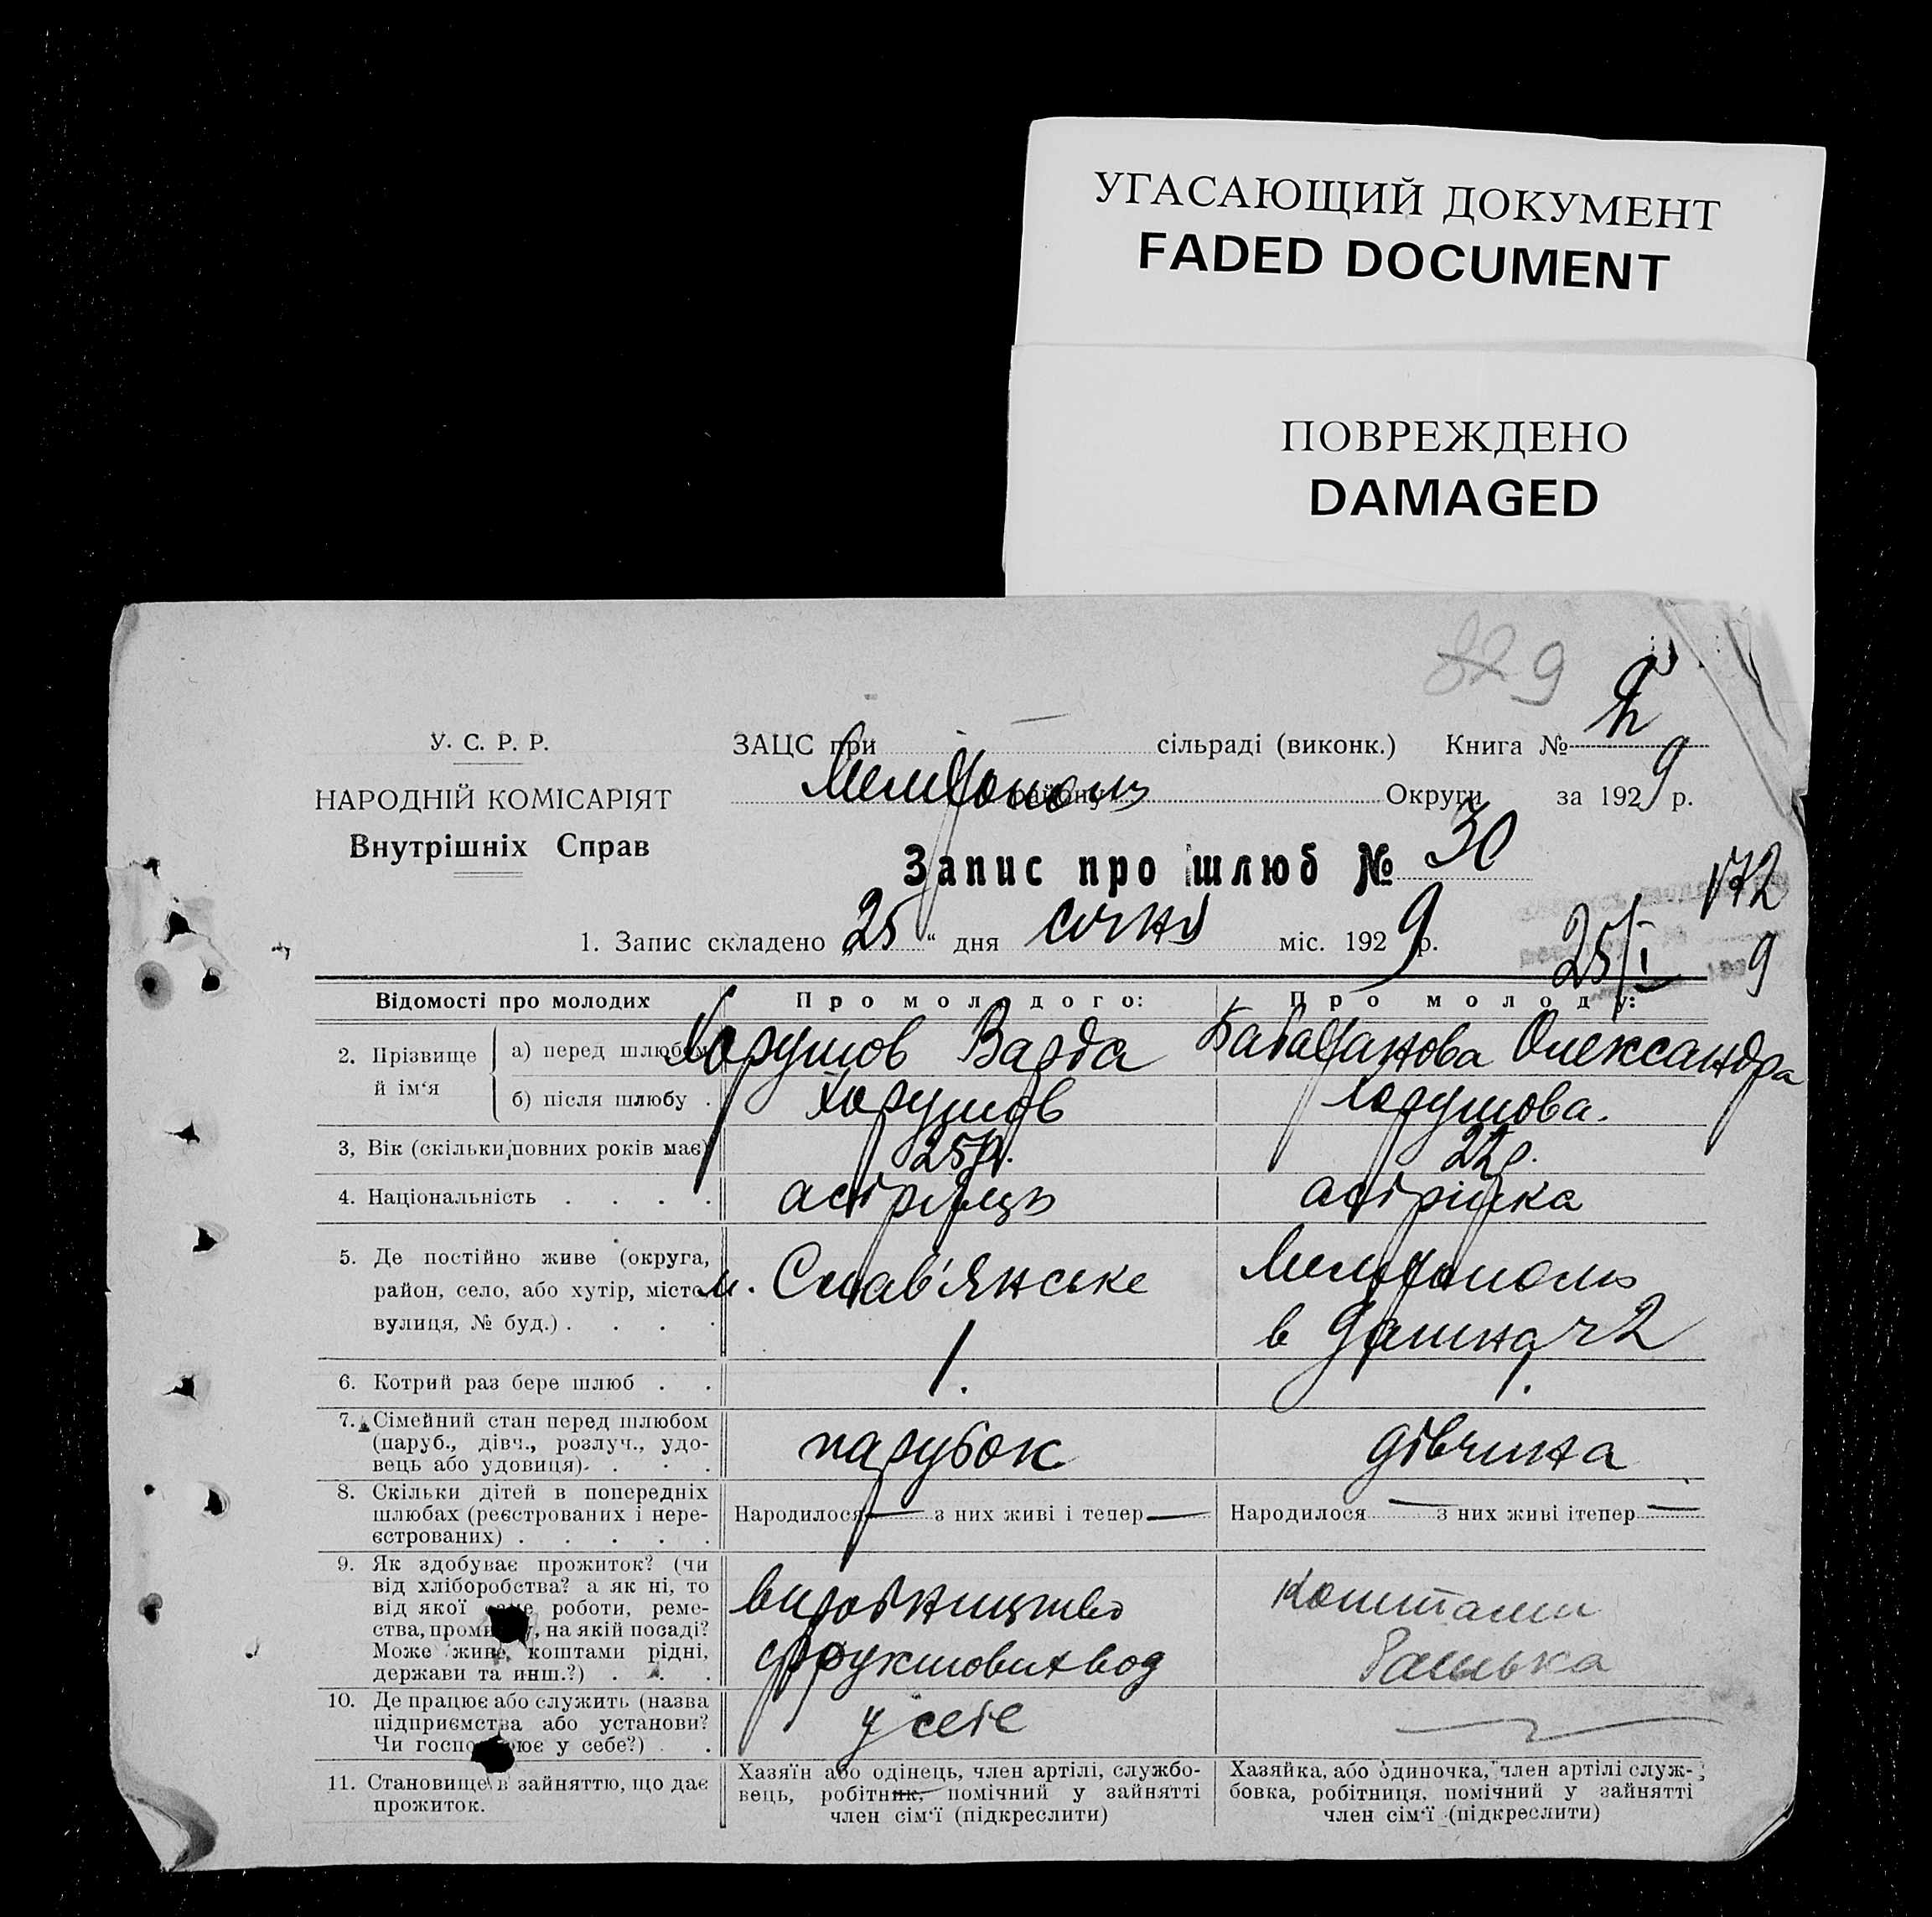 УГАСАЮЩИЙ ДОКУМЕНТ
FADED DOCUMENT
ПОВРЕЖДЕНО
DAMAGED
829
У. С. Р. Р.
НАРОДНІЙ КОМІСАРІЯТ
Внутрішніх Справ
ЗАЦС при сільраді (виконк.) Книга №
Мелітополь району Округи за 1929 р.
Запис про шлюб № 30
172
1. Запис складено „25“ дня січня міс. 1929 р.
25/I 9
Відомості про молодих
Про молодого:
Про молоду:
2. Прізвище й ім‘я
а) перед шлюбом
Хорушов Варда
Бабаханова Олександра
б) після шлюбу .
Хорушов
Хорушова.
3, Вік (скільки повних років має)
25 р.
22 р.
4. Національність . . . .
асірієць
асірійка
5. Де постійно живе (округа,
район, село, або хутір, місто
вулиця, № буд.) . . . .
м. Слав'янське
Мелітополь
6. Котрий раз бере шлюб . .
1.
1.
7. Сімейний стан перед шлюбом
(паруб., дівч., розлуч., удо-
вець або удовиця) . . .
парубок
дівчина
8. Скільки дітей в попередніх
шлюбах (реєстрованих і нере-
єстрованих) . . . . .
Народилося — з них живі і тепер —
Народилося — з них живі ітепер —
9. Як здобуває прожиток? (чи
від хліборобства? а як ні, то
від якої роботи, реме-
ства, на якій посаді?
Може живе, коштами рідні,
держави та инш.?) . . .
виробництво
фруктових вод
коштами
батька
10. Де працює або служить (назва
підприємства або установи?
Чи у себе?) . .
у себе
11. Становище в зайняттю, що дає
прожиток.
Хазяїн або одінець, член артілі, службо-
вець, робітник, помічний у зайнятті
член сім‘ї (підкреслити)
Хазяйка, або одиночка, член артілі служ-
бовка, робітниця, помічний у зайнятті
член сім‘ї (підкреслити)